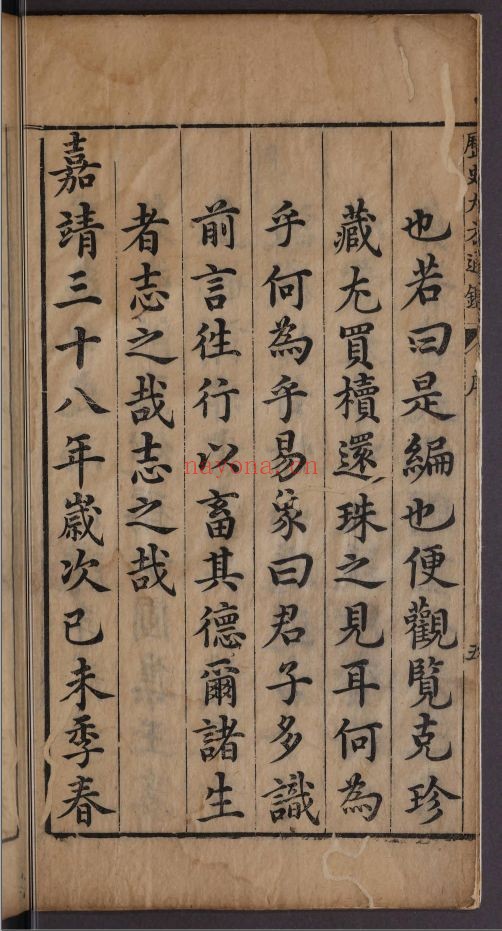 也若曰是編也便觀覽克珍
藏尢買櫝還珠之見耳何為
乎何為乎易象曰君子多識
前言徃行以畜其德爾諸生
者志之哉志之哉
嘉靖三十八年嵗次己未季春
nayona.cn